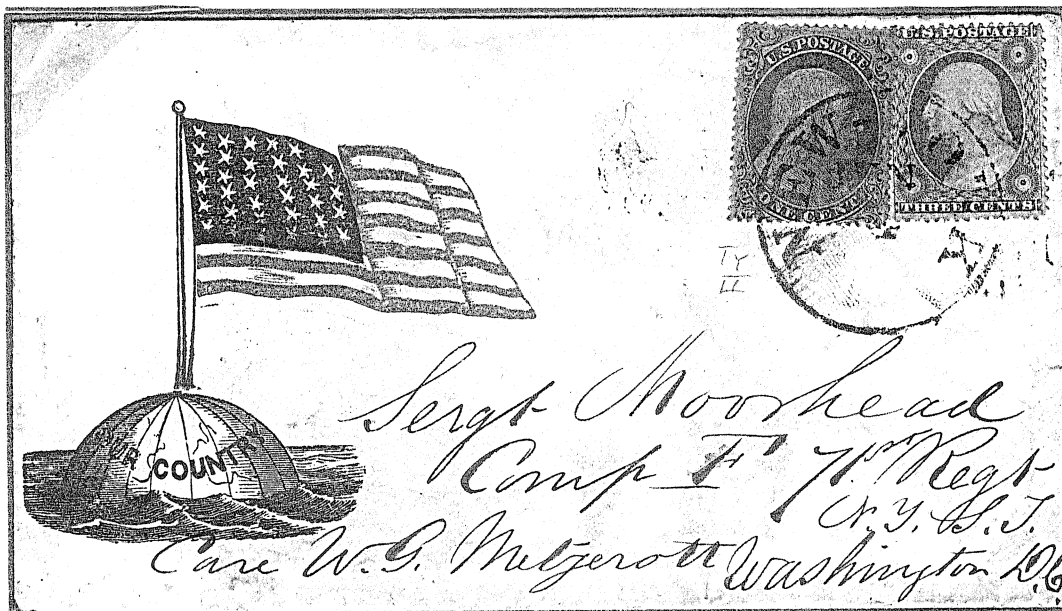 U.S. POSTAGE
ONE CENT
U.S. POSTAGE
THREE CENTS
NEW
OUR COUNTRY
Sergt Moorhead
Comp F 71st Regt
N.Y.S.
Care W. G. Metzerott Washington D.C.